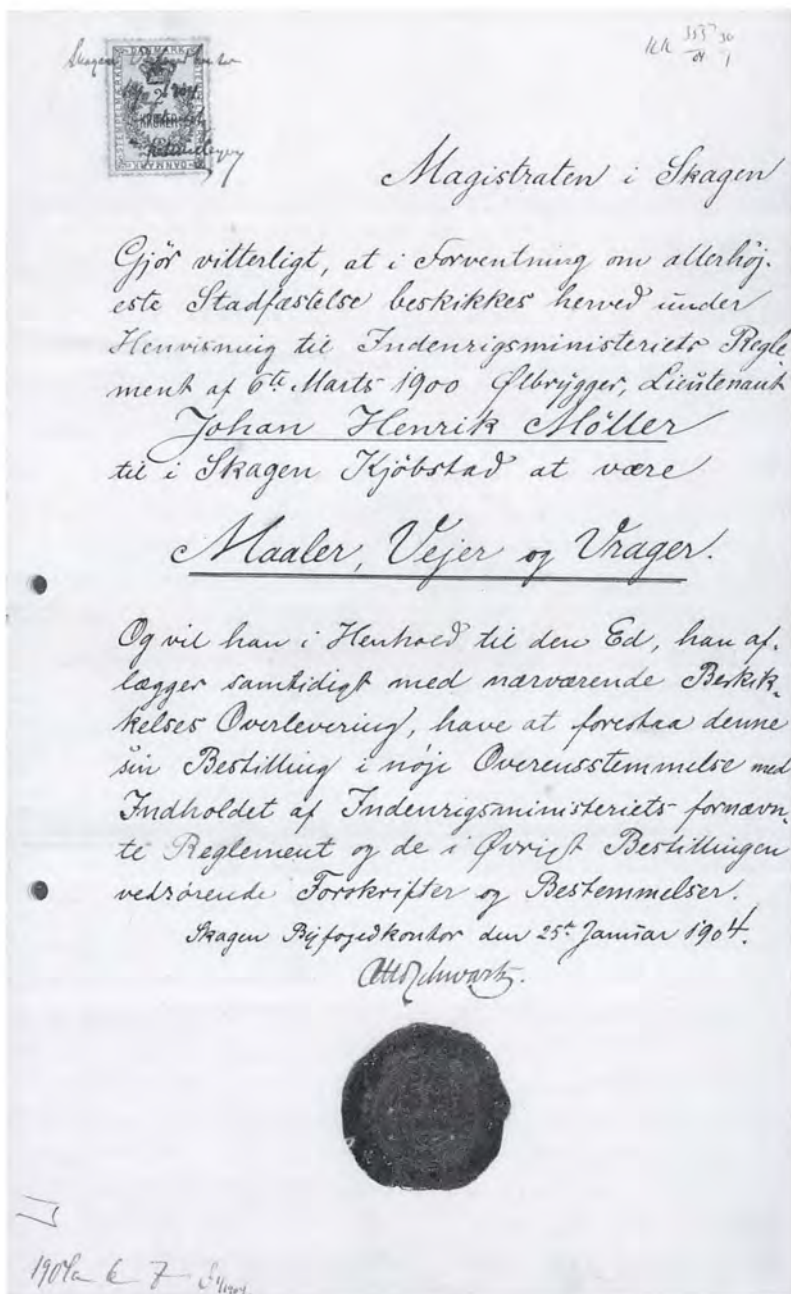 Skagen
DANMARK
STEMPELMÆRKE
DANMARK
KK 355 30
04 1
Magistraten i Skagen
Gjör vitterligt, at i Forventning om allerhöj-
este Stadfæstelse beskikkes herved under
Henvisning til Indenrigsministeriets Regle-
ment af 6te Marts 1900 Ølbrygger, Lieutenant
Johan Henrik Møller
til i Skagen Kjöbstad at være
Maaler, Vejer og Vrager.
Og vil han i Henhold til den Ed, han af-
lægger samtidigt med nærværende Beskik-
kelses Overlevering, have at forestaa denne
sin Bestilling i nøje Overensstemmelse med
Indholdet af Indenrigsministeriets fornævn-
te Reglement og de i Øvrigt Bestillingen
vedrørende Forskrifter og Bestemmelser.
Skagen Byfogedkontor den 25de Januar 1904.
Otto Schwartz.